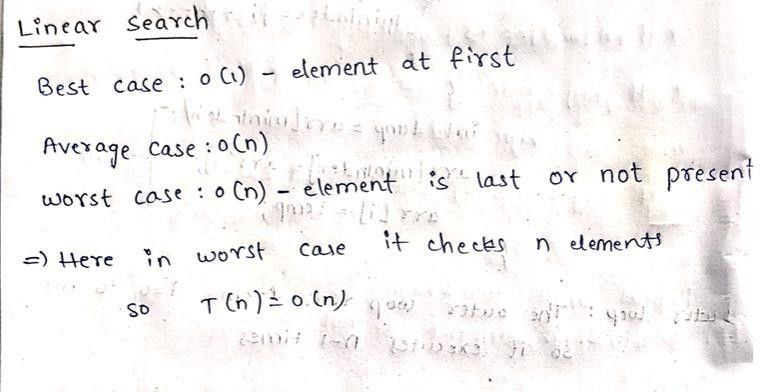 Linear search
Best case : o(1) - element at first
Average case : o(n)
worst case : o(n) - element is last or not present
=) Here in worst case it checks n elements
so T(n) = o(n)